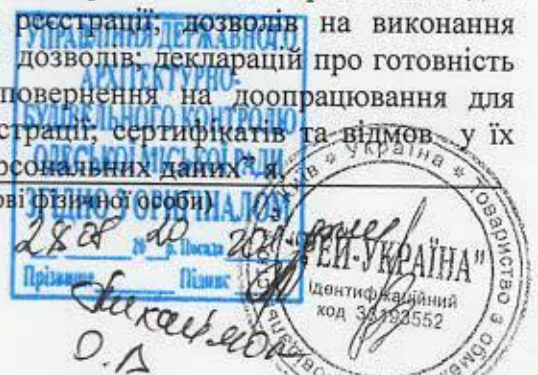 реєстрації; дозволів на виконання
дозволів; декларацій про готовність
повернення на доопрацювання для
страції; сертифікатів та відмов у їх
рсональних даних" я,
ові фізичної особи)
УПРАВЛІННЯ ДЕРЖАВНОГО
АРХІТЕКТУРНО-
БУДІВЕЛЬНОГО КОНТРОЛЮ
ОДЕСЬКОЇ МІСЬКОЇ РАДИ
ЗГІДНО З ОРИГІНАЛОМ
28 08 20 р. Посада
Прізвище Підпис
О.
україна * товариство з обмеж
РЕЙ-УКРАЇНА"
Ідентифікаційний
код 33193552